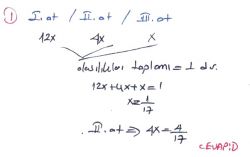 ① I.at / II.at / III.at
12x 4x x
olasılıkları toplamı = 1 dir.
12x+4x+x=1
x=1/17
II.at ⇒ 4x=4/17
CEVAP:D